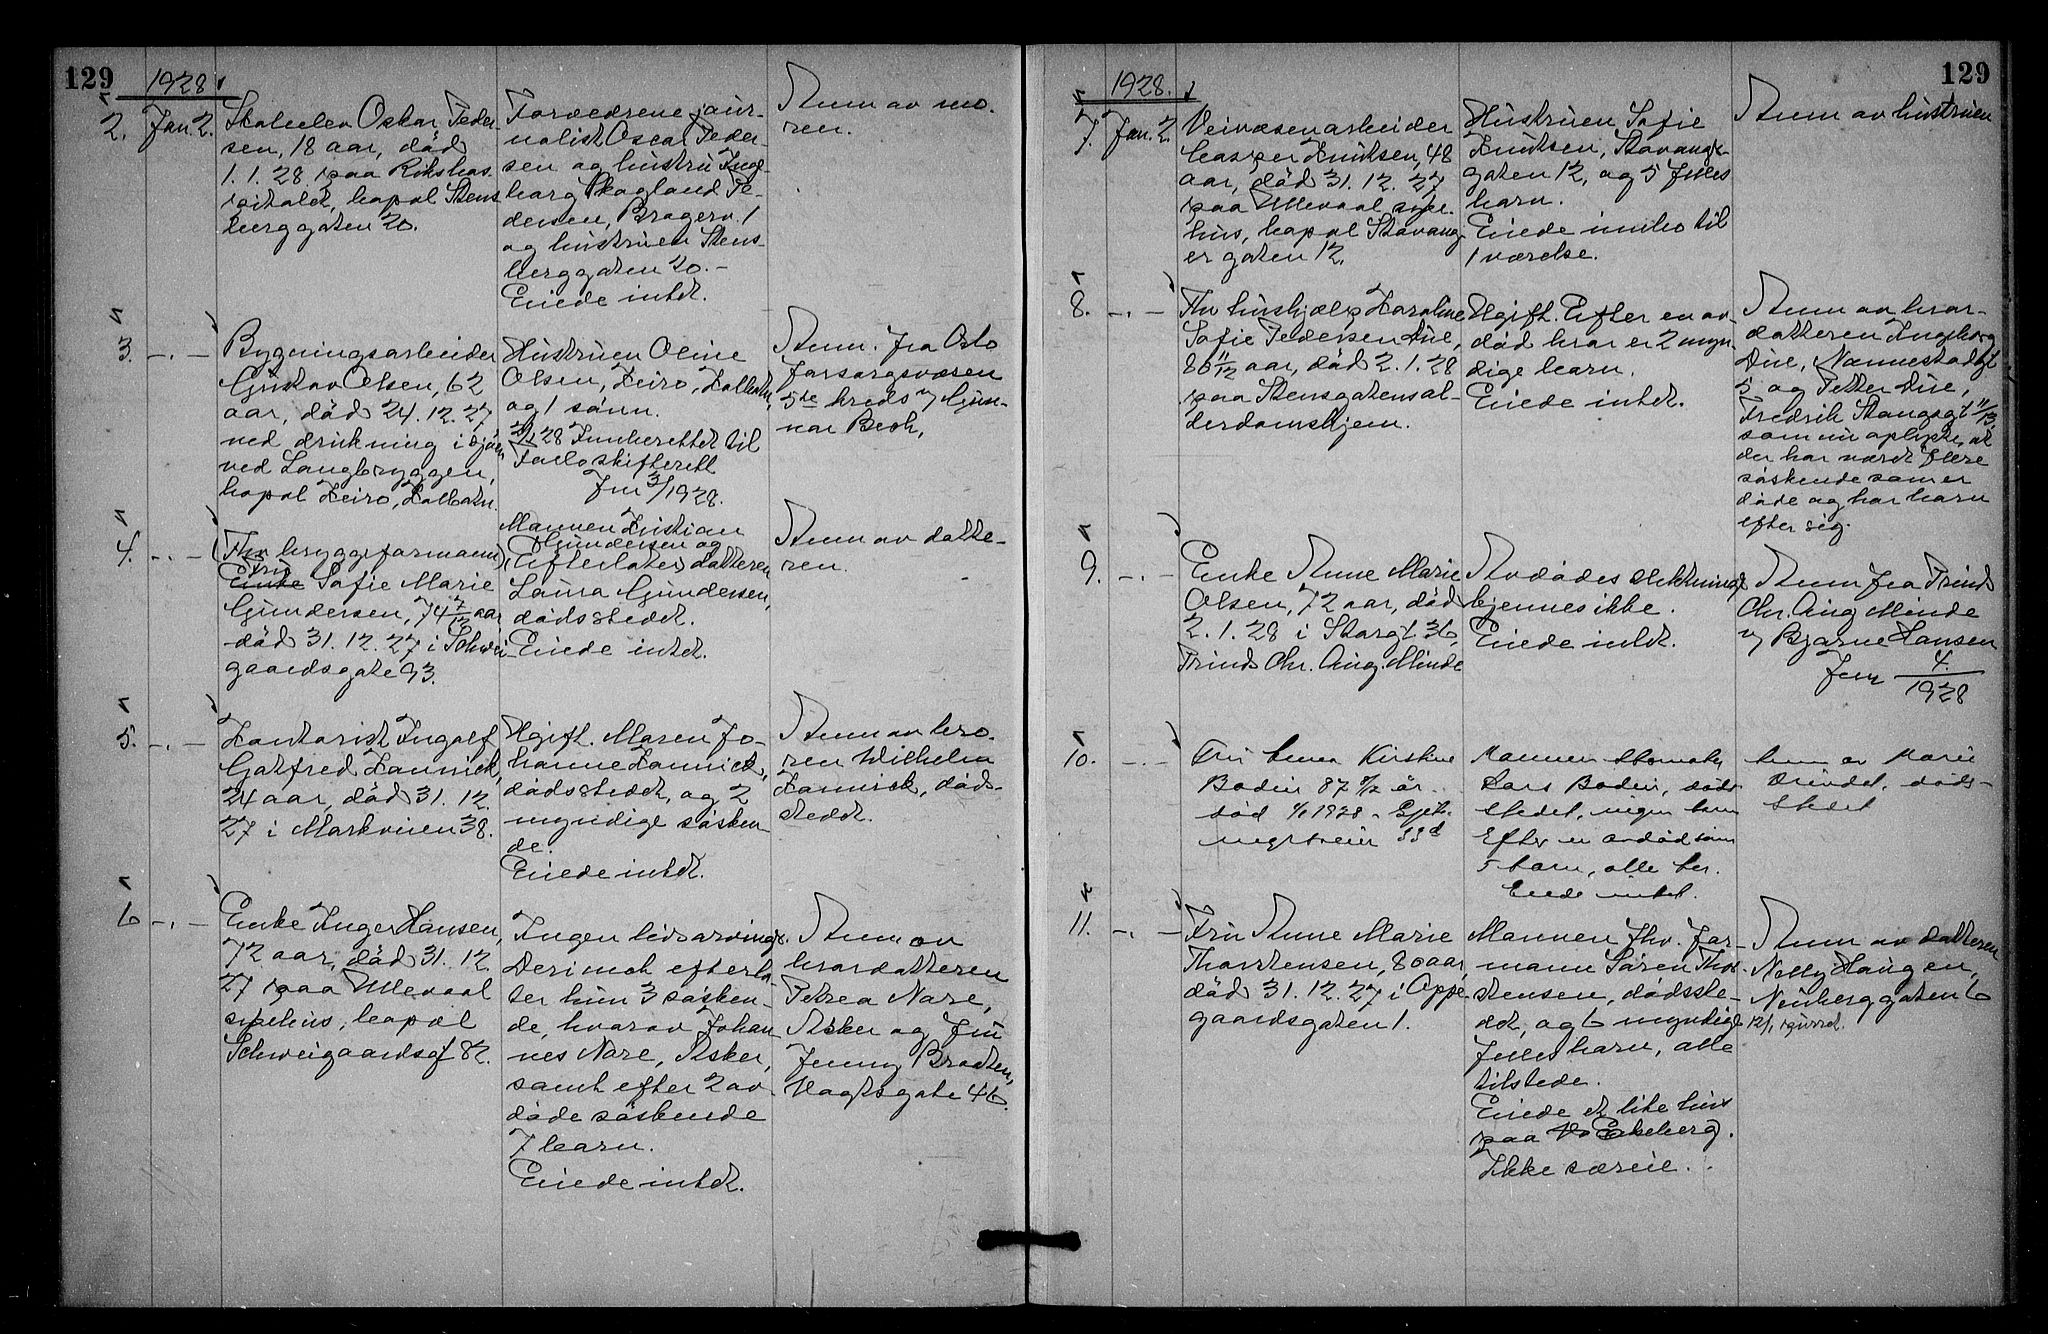 129
1928
2. Jan. 2.
Skoleelev Oskar Peder-
sen, 18 aar, död
1.1.28 paa Rikshos-
pitalet, bopæl Stens
berggaten 20.
Forældrene jour-
nalist Oscar Peder-
sen og hustru Inge-
borg Skogland Pe-
dersen,
og hustruen Stens-
berggaten 20.-
Eiede intet.
Anm. av mo-
ren.
3. -"-
Bygningsarbeider
Gustav Olsen, 62
aar, död 24.12.27
ved drukning i Sjöen
ved Langbryggen,
bopæl
Hustruen Oline
Olsen,
og 1 sönn.
28 Innberettet til
skifterett
Jnr 3/1928.
Anm. fra Oslo
forsorgsvæsen
5te kreds v/ Gun-
nar Bech.
4. -"-
(Fhv bryggeformann)
Fru
Enke Sofie Marie
Gundersen, 74 7/12 aar
död 31.12.27 i Schwei-
gaardsgate 93.
Mannen Kristian
Gundersen og
Efterlater datteren
Laura Gundersen,
dödsstedet.
Eiede intet.
Anm av datte-
ren.
5. -"-
Kontorist Ingolf
Gotfred
24 aar, död 31.12.
27 i Markveien 38.
Ugift. Moren Jo-
hanne
dödsstedet, og 2
myndige sösken-
de.
Eiede intet.
Anm av bro-
ren Wilhelm
döds-
stedet.
6 -"-
Enke Inger Hansen,
72 aar, död 31.12.
27 paa Ullevaal
sykehus, bopæl
Schweigaardsgt 82.
Ingen livsarving.
Derimot efterla-
ter hun 3 sösken-
de, hvorav Johan-
nes Nare, Asker,
samt efter 2 av-
döde söskende
7 barn.
Eiede intet.
Anm av
brordatteren
Petrea Nare,
Asker og fru
Jenny Braaten,
Vogtsgate 46.
129
1928.
7. Jan. 2.
Veivæsenarbeider
Casper Knutsen, 48
aar, död 31.12.27
paa Ullevaal syke-
hus, bopæl Stavang-
ergaten 12.
Hustruen Sofie
Knutsen, Stavanger-
gaten 12, og 5 fælles
barn.
Eiede innbo til
1 værelse.
Anm av hustruen
8. -"-
Fhv hushjælp Karoline
Sofie Pedersen Due,
80 11/12 aar, död 2.1.28
paa Stensgatens al-
derdomshjem.
Ugift. Efter en av-
död bror er 2 myn-
dige barn.
Eiede intet.
Anm av bror-
datteren Ingeborg
Due, Nannestadgt
5 og Petter Due,
Fredrik Stangsgt 11/13,
som nu oplyste, at
der har været flere
söskende som er
döde og har barn
efter sig.
9. -"-
Enke Anne Marie
Olsen, 72 aar, död
2.1.28 i Storgt 36,
Trinds Chr. Aug. Minde
Avdödes slektninge
kjennes ikke.
Eiede intet.
Anm fra Trinds
Chr. Aug Minde
v/ Bjarne Hansen
Jnr 4/1928
10. -"-
Fru Lena Kirstine
Bodin 87 år
död 1/1 1928 -
veien 33d
Mannen
Lars Bodin, döds-
stedet, ingen barn
Efter en avdöd sönn
5 barn, alle her.
Eiede intet.
Anm av Marie
döds-
stedet
11. -"-
Fru Anne Marie
Thorstensen, 80 aar,
död 31.12.27 i Oppe-
gaardsgaten 1.
Mannen fhv. for-
mann Sören Thor-
stensen, dödsste-
det, og 6 myndige
fælles barn, alle
tilstede.
Eiede et lite hus
paa Ekeberg.
Ikke særeie.
Anm av datteren
Nelly Haugen,
Neuberggaten 6